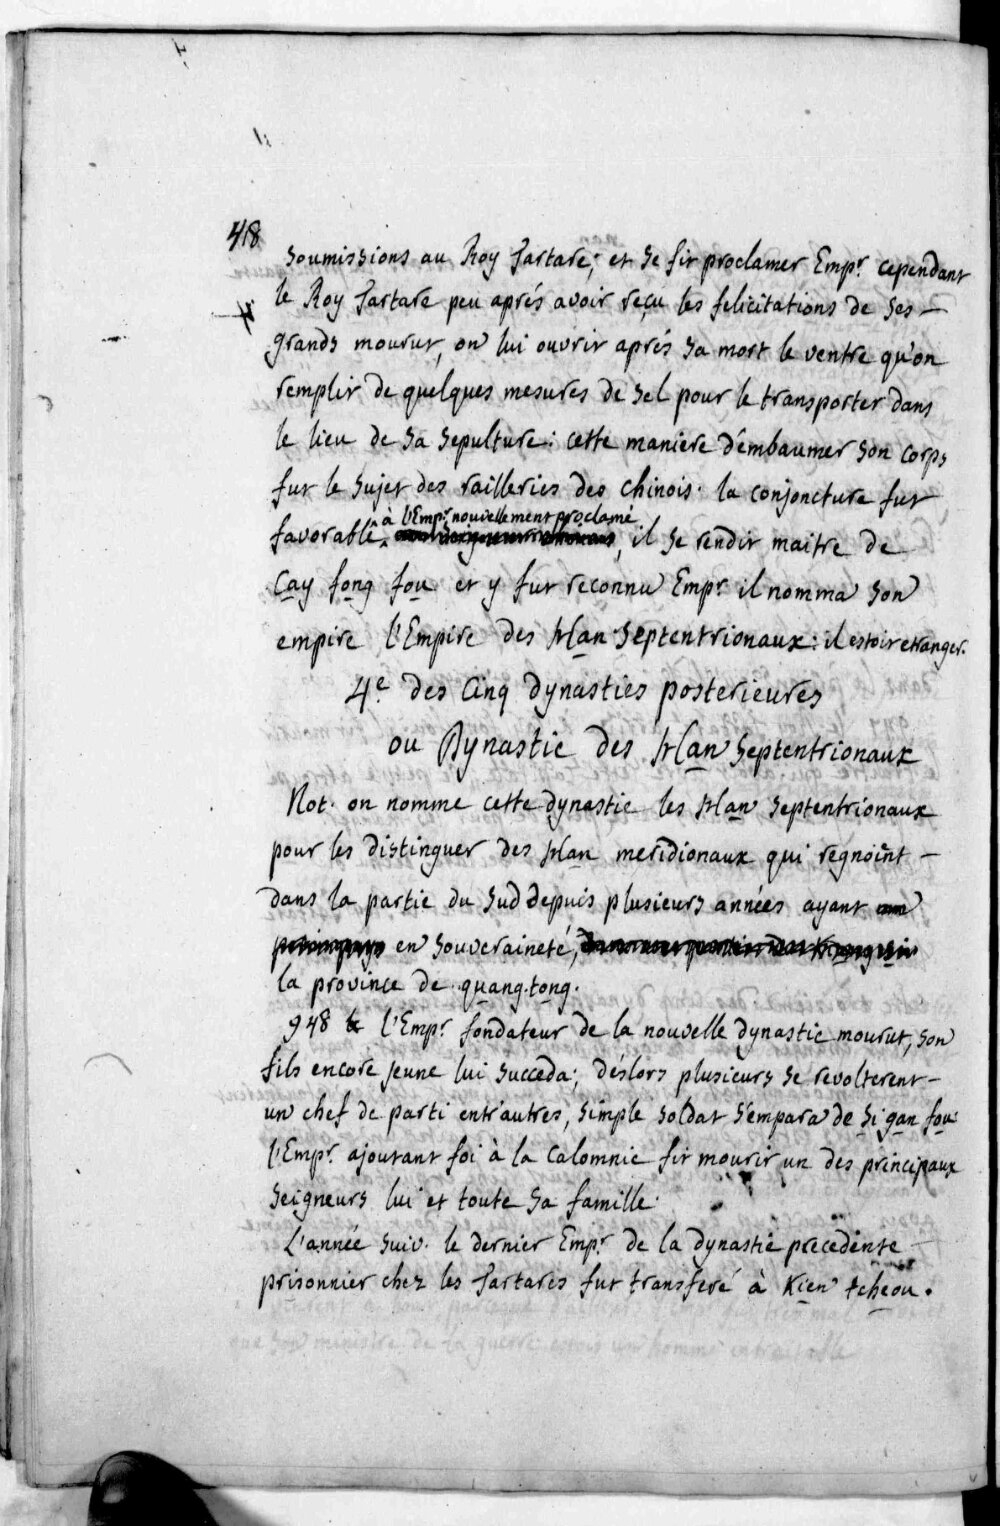 418
soumissions au Roy Tartare; et se fit proclamer Empr. cependant
le Roy Tartare peu aprés avoir reçu les felicitations de ses
grands mourut, on lui ouvrit aprés sa mort le ventre qu'on
remplit de quelques mesures de sel pour le transporter dans
le lieu de sa sepulture: cette maniere d'embaumer son corps
fut le sujet des railleries des chinois. la conjoncture fut
à l'Empr. nouvellement proclamé
favorable, il se rendit maitre de
Cay fong fou et y fut reconnu Empr. il nomma son
empire l'Empire des Han septentrionaux: il estoit etranger.
4e des Cinq dynasties posterieures
ou Dynastie des Han septentrionaux
Not. on nomme cette dynastie les Han septentrionaux
pour les distinguer des Han meridionaux qui regnoint
dans la partie du sud depuis plusieurs années ayant
en souveraineté,
la province de quang-tong.
948 l'Empr. fondateur de la nouvelle dynastie mourut, son
fils encore jeune lui succeda; déslors plusieurs se revolterent
un chef de parti entr'autres, simple soldat s'empara de si gan fou
l'Empr. ajoutant foi à la calomnie fit mourir un des principaux
seigneurs lui et toute sa famille.
L'année suiv. le dernier Empr. de la dynastie precedente
prisonnier chez les Tartares fut transferé à Kien tcheou.